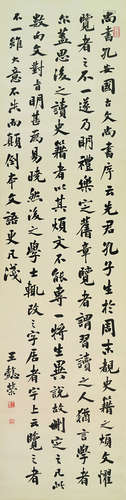 尚書孔安國古文尚書序云先君孔子生於周末覩史籍之煩文懼
覽者之不一遂乃明禮樂定舊章覽者謂習讀之人猶言學者
尒蓋思後之讀史籍者以其煩文不能專一將生異說故刪定之凡此
數句文對旨明甚為易曉然後之學士輒改之字居者字上云覽之者
不一雖大意不失而顛倒本文語更凡淺
王懿榮